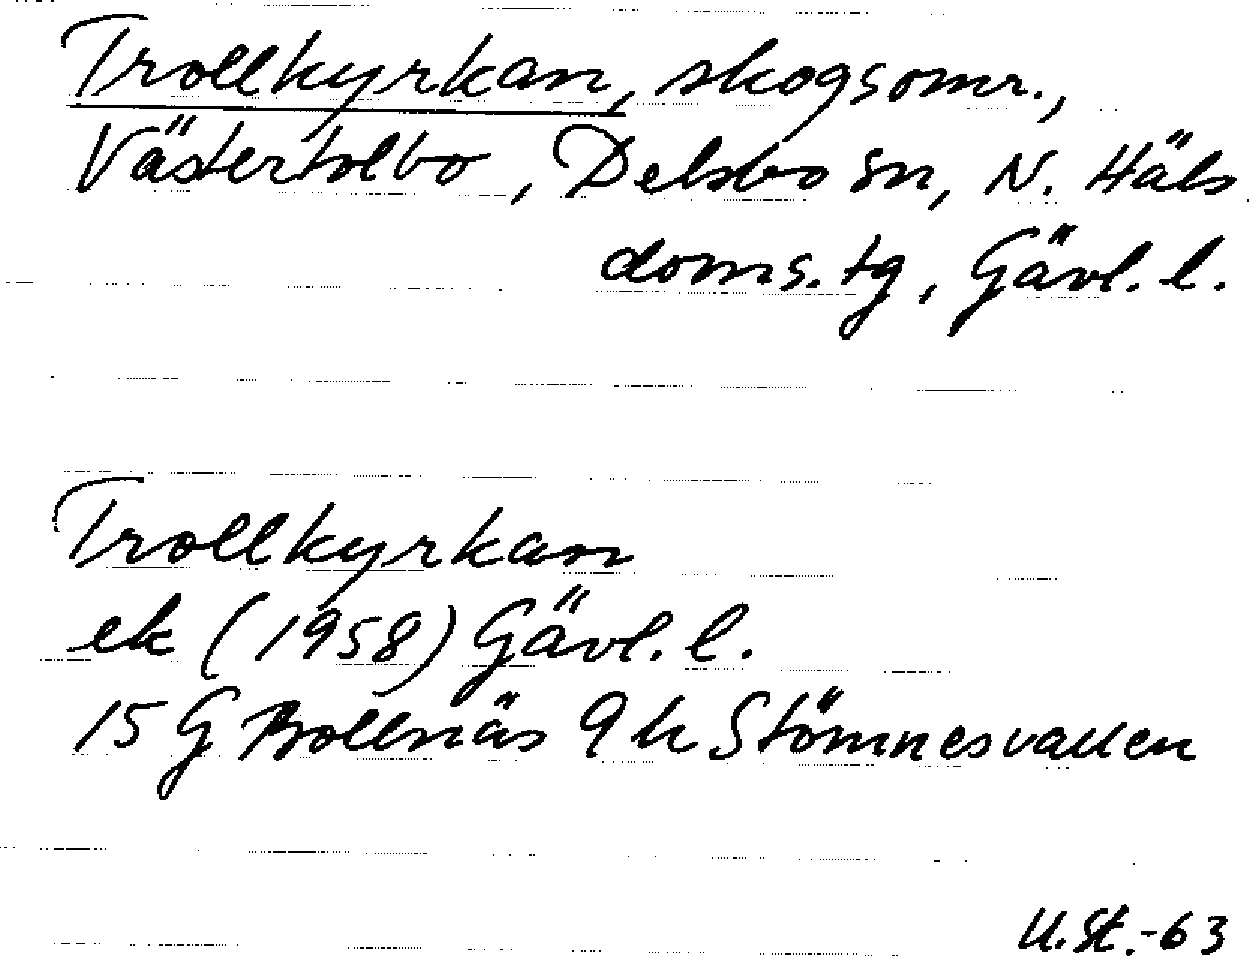 Trollkyrkan, skogsomr.,
Västertolbo, Delsbo sn, N. Häls.
doms. tg, Gävl. l.
Trollkyrkan
ek (1958) Gävl. l.
15 G Bollnäs 9 h Stömnesvallen
U.St.-63